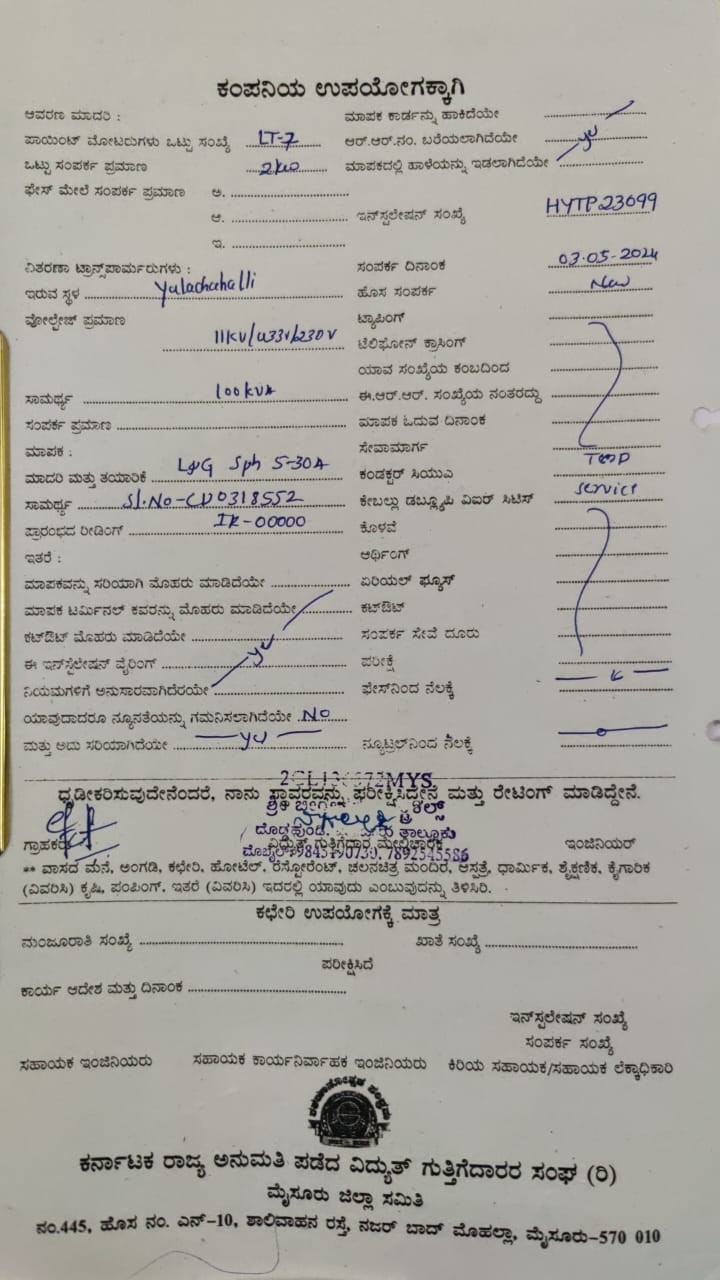 ಕಂಪನಿಯ ಉಪಯೋಗಕ್ಕಾಗಿ
ಆವರಣ ಮಾದರಿ : ಮಾಪಕ ಕಾರ್ಡನ್ನು ಹಾಕಿದೆಯೇ
ಪಾಯಿಂಟ್ ಮೋಟರುಗಳು ಒಟ್ಟು ಸಂಖ್ಯೆ LT-7 ಆರ್.ಆರ್.ನಂ. ಬರೆಯಲಾಗಿದೆಯೇ
ಒಟ್ಟು ಸಂಪರ್ಕ ಪ್ರಮಾಣ 2kw ಮಾಪಕದಲ್ಲಿ ಹಾಳೆಯನ್ನು ಇಡಲಾಗಿದೆಯೇ yes
ಫೇಸ್ ಮೇಲೆ ಸಂಪರ್ಕ ಪ್ರಮಾಣ ಅ.
ಆ. ಇನ್‌ಸ್ಟಲೇಷನ್ ಸಂಖ್ಯೆ HYTP23699
ಇ.
ವಿತರಣಾ ಟ್ರಾನ್ಸ್‌ಪಾರ್ಮರುಗಳು : ಸಂಪರ್ಕ ದಿನಾಂಕ 03-05-2024
ಇರುವ ಸ್ಥಳ Yalachahalli ಹೊಸ ಸಂಪರ್ಕ New
ವೋಲ್ಟೇಜ್ ಪ್ರಮಾಣ 11KV/433V/230V ಟ್ಯಾಪಿಂಗ್
ಟೆಲಿಫೋನ್ ಕ್ರಾಸಿಂಗ್
ಯಾವ ಸಂಖ್ಯೆಯ ಕಂಬದಿಂದ
ಸಾಮರ್ಥ್ಯ 100kVA ಈ.ಆರ್.ಆರ್. ಸಂಖ್ಯೆಯ ನಂತರದ್ದು
ಸಂಪರ್ಕ ಪ್ರಮಾಣ ಮಾಪಕ ಓದುವ ದಿನಾಂಕ
ಮಾಪಕ : ಸೇವಾಮಾರ್ಗ
ಮಾದರಿ ಮತ್ತು ತಯಾರಿಕೆ L&G Sph 5-30A ಕಂಡಕ್ಟರ್ ಸಿಯುಎ Temp
ಸಾಮರ್ಥ್ಯ Sl.No-CD0318552 ಕೇಬಲ್ಲು ಡಬ್ಲ್ಯೂಪಿ ವಿಐರ್ ಸಿಟಿಸ್ service
ಪ್ರಾರಂಭದ ರೀಡಿಂಗ್ IR-00000 ಕೊಳವೆ
ಇತರೆ : ಆರ್ಥಿಂಗ್
ಮಾಪಕವನ್ನು ಸರಿಯಾಗಿ ಮೊಹರು ಮಾಡಿದೆಯೇ ಏರಿಯಲ್ ಫ್ಯೂಸ್
ಮಾಪಕ ಟರ್ಮಿನಲ್ ಕವರನ್ನು ಮೊಹರು ಮಾಡಿದೆಯೇ ಕಟ್‌ಔಟ್
ಕಟ್‌ಔಟ್ ಮೊಹರು ಮಾಡಿದೆಯೇ ಸಂಪರ್ಕ ಸೇವೆ ದೂರು
ಈ ಇನ್‌ಸ್ಟಲೇಷನ್ ವೈರಿಂಗ್ yes ಪರೀಕ್ಷೆ
ನಿಯಮಗಳಿಗೆ ಅನುಸಾರವಾಗಿದೆರಯೇ ಫೇಸ್‌ನಿಂದ ನೆಲಕ್ಕೆ
ಯಾವುದಾದರೂ ನ್ಯೂನತೆಯನ್ನು ಗಮನಿಸಲಾಗಿದೆಯೇ NO
ಮತ್ತು ಅದು ಸರಿಯಾಗಿದೆಯೇ yes ನ್ಯೂಟ್ರಲ್‌ನಿಂದ ನೆಲಕ್ಕೆ
ಧೃಡೀಕರಿಸುವುದೇನೆಂದರೆ, ನಾನು ಸ್ಥಾವರವನ್ನು ಪರೀಕ್ಷಿಸಿದ್ದೇನೆ ಮತ್ತು ರೇಟಿಂಗ್ ಮಾಡಿದ್ದೇನೆ.
ಗ್ರಾಹಕರು ವಿದ್ಯುತ್ ಗುತ್ತಿಗೆದಾರ ಮೇಲ್ವಿಚಾರಕ ಇಂಜಿನಿಯರ್
** ವಾಸದ ಮನೆ, ಅಂಗಡಿ, ಕಛೇರಿ, ಹೋಟೆಲ್, ರೆಸ್ಟೋರೆಂಟ್, ಚಲನಚಿತ್ರ ಮಂದಿರ, ಆಸ್ಪತ್ರೆ, ಧಾರ್ಮಿಕ, ಶೈಕ್ಷಣಿಕ, ಕೈಗಾರಿಕ
(ವಿವರಿಸಿ) ಕೃಷಿ, ಪಂಪಿಂಗ್. ಇತರೆ (ವಿವರಿಸಿ) ಇದರಲ್ಲಿ ಯಾವುದು ಎಂಬುವುದನ್ನು ತಿಳಿಸಿರಿ.
ಕಛೇರಿ ಉಪಯೋಗಕ್ಕೆ ಮಾತ್ರ
ಮಂಜೂರಾತಿ ಸಂಖ್ಯೆ ಖಾತೆ ಸಂಖ್ಯೆ
ಪರೀಕ್ಷಿಸಿದೆ
ಕಾರ್ಯ ಆದೇಶ ಮತ್ತು ದಿನಾಂಕ
ಇನ್‌ಸ್ಟಲೇಷನ್ ಸಂಖ್ಯೆ
ಸಂಪರ್ಕ ಸಂಖ್ಯೆ
ಸಹಾಯಕ ಇಂಜಿನಿಯರು ಸಹಾಯಕ ಕಾರ್ಯನಿರ್ವಾಹಕ ಇಂಜಿನಿಯರು ಕಿರಿಯ ಸಹಾಯಕ/ಸಹಾಯಕ ಲೆಕ್ಕಾಧಿಕಾರಿ
ಕರ್ನಾಟಕ ರಾಜ್ಯ ಅನುಮತಿ ಪಡೆದ ವಿದ್ಯುತ್ ಗುತ್ತಿಗೆದಾರರ ಸಂಘ (ರಿ)
ಮೈಸೂರು ಜಿಲ್ಲಾ ಸಮಿತಿ
ನಂ.445, ಹೊಸ ನಂ. ಎನ್-10, ಶಾಲಿವಾಹನ ರಸ್ತೆ, ನಜರ್ ಬಾದ್ ಮೊಹಲ್ಲಾ, ಮೈಸೂರು-570 010